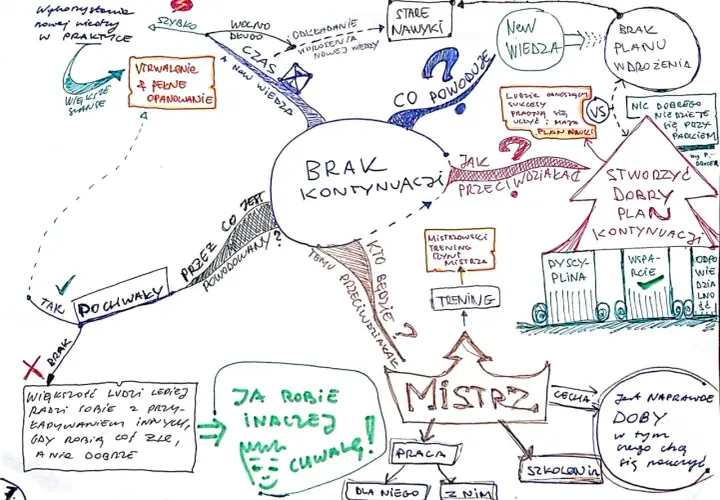 Wykorzystanie
nowej wiedzy
w PRAKTYCE
SZYBKO
WOLNO
DŁUGO
ODKŁADANIE
WDROŻENIA
NOWEJ WIEDZY
STARE
NAWYKI
NEW
WIEDZA
BRAK
PLANU
WDROŻENIA
WIĘKSZE
SZANSE
UTRWALENIE
+ PEŁNE
OPANOWANIE
CZAS
A NEW WIEDZA
?
CO POWODUJE
LUDZIE ODNOSZĄCY
SUKCESY
PRAGNĄ SIĘ
UCZYĆ I MAJĄ
PLAN NAUKI
VS
NIC DOBREGO
NIE DZIEJE
SIĘ PRZY
PADKIEM
BRAK
KONTYNUACJI
JAK
PRZECIWDZIAŁAĆ
?
STWORZYĆ
DOBRY
PLAN
KONTYNUACJI
DYSCY-
PLINA
WSPA-
RCIE
ODPO
WIE
DZIA
LNO
ŚĆ
PRZEZ CO JEST
POWODOWANY?
KTO BĘDZIE
TEMU PRZECIWDZIAŁAŁ
?
MISTRZOWSKI
TRENING
CZYNI
MISTRZA
TRENING
TAK
POCHWAŁY
BRAK
WIĘKSZOŚĆ LUDZI LEPIEJ
RADZI SOBIE Z PRZY-
ŁAPYWANIEM INNYCH,
GDY ROBIĄ COŚ ŹLE,
A NIE DOBRZE
JA ROBIE
INACZEJ
CHWALĘ!
MISTRZ
CECHA
Jest NAPRAWDĘ
DOBY
w tym
czego chcą
się nauczyć
PRACA
DLA NIEGO
Z NIM
SZKOLENIA